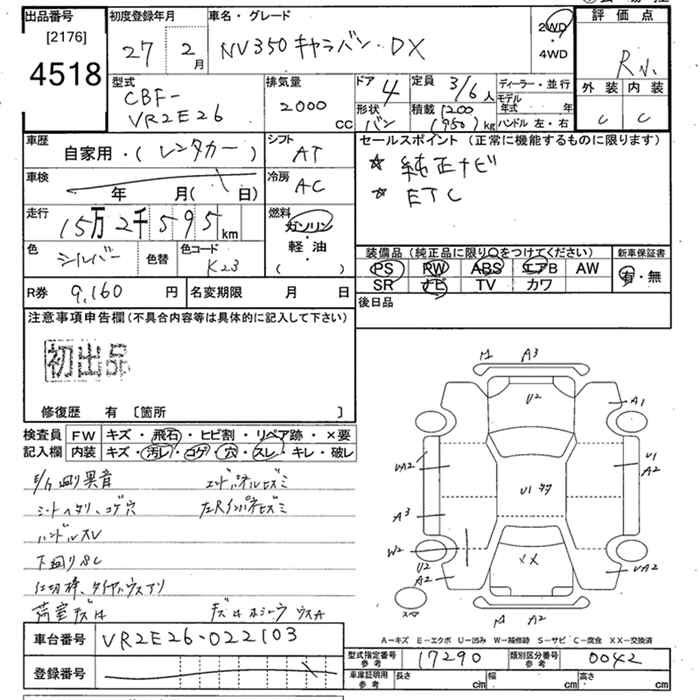 出品番号 初度登録年月 車名・グレード 評価点
[2176]
4518 27年 2月 NV350キャラバン・DX 2WD・4WD R
型式 CBF-VR2E26 排気量 2000cc ドア 4 定員 3/6人 ディーラー・並行
形状 バン 積載 1200(950)kg モデル年式 年 ハンドル 左・右 外装 C 内装 C
車歴 自家用・(レンタカー) シフト AT セールスポイント (正常に機能するものに限ります)
★ 純正ナビ
★ ETC
車検 年 月( 日) 冷房 AC
走行 15万2千595km 燃料 ガソリン・軽油( )
色 シルバー 色替 色コード K23
装備品(純正品に限り○をつけてください) 新車保証書
PS RW ABS エアB AW 有・無
SR ナビ TV カワ
R券 9,160円 名変期限 月 日 後日品
注意事項申告欄(不具合内容等は具体的に記入して下さい)
初出品
修復歴 有 〔箇所 〕
検査員 FW キズ・飛石・ヒビ割・リペア跡・×要
記入欄 内装 キズ・汚レ・コゲ・穴・スレ・キレ・破レ
異音
シートヘタリ、コゲ穴
ハンドルスレ
下回りSC
A3
U2
A1
UA2
U1
A2
A3
W2
U2
A2
××
UA2
A2
スペア
A-キズ E-エクボ U-凹み W-補修跡 S-サビ C-腐食 XX-交換済
車台番号 VR2E26-022103
型式指定番号 参考 17290 類別区分番号 参考 0042
登録番号
車庫証明用 参考 長さ cm 幅 cm 高さ cm